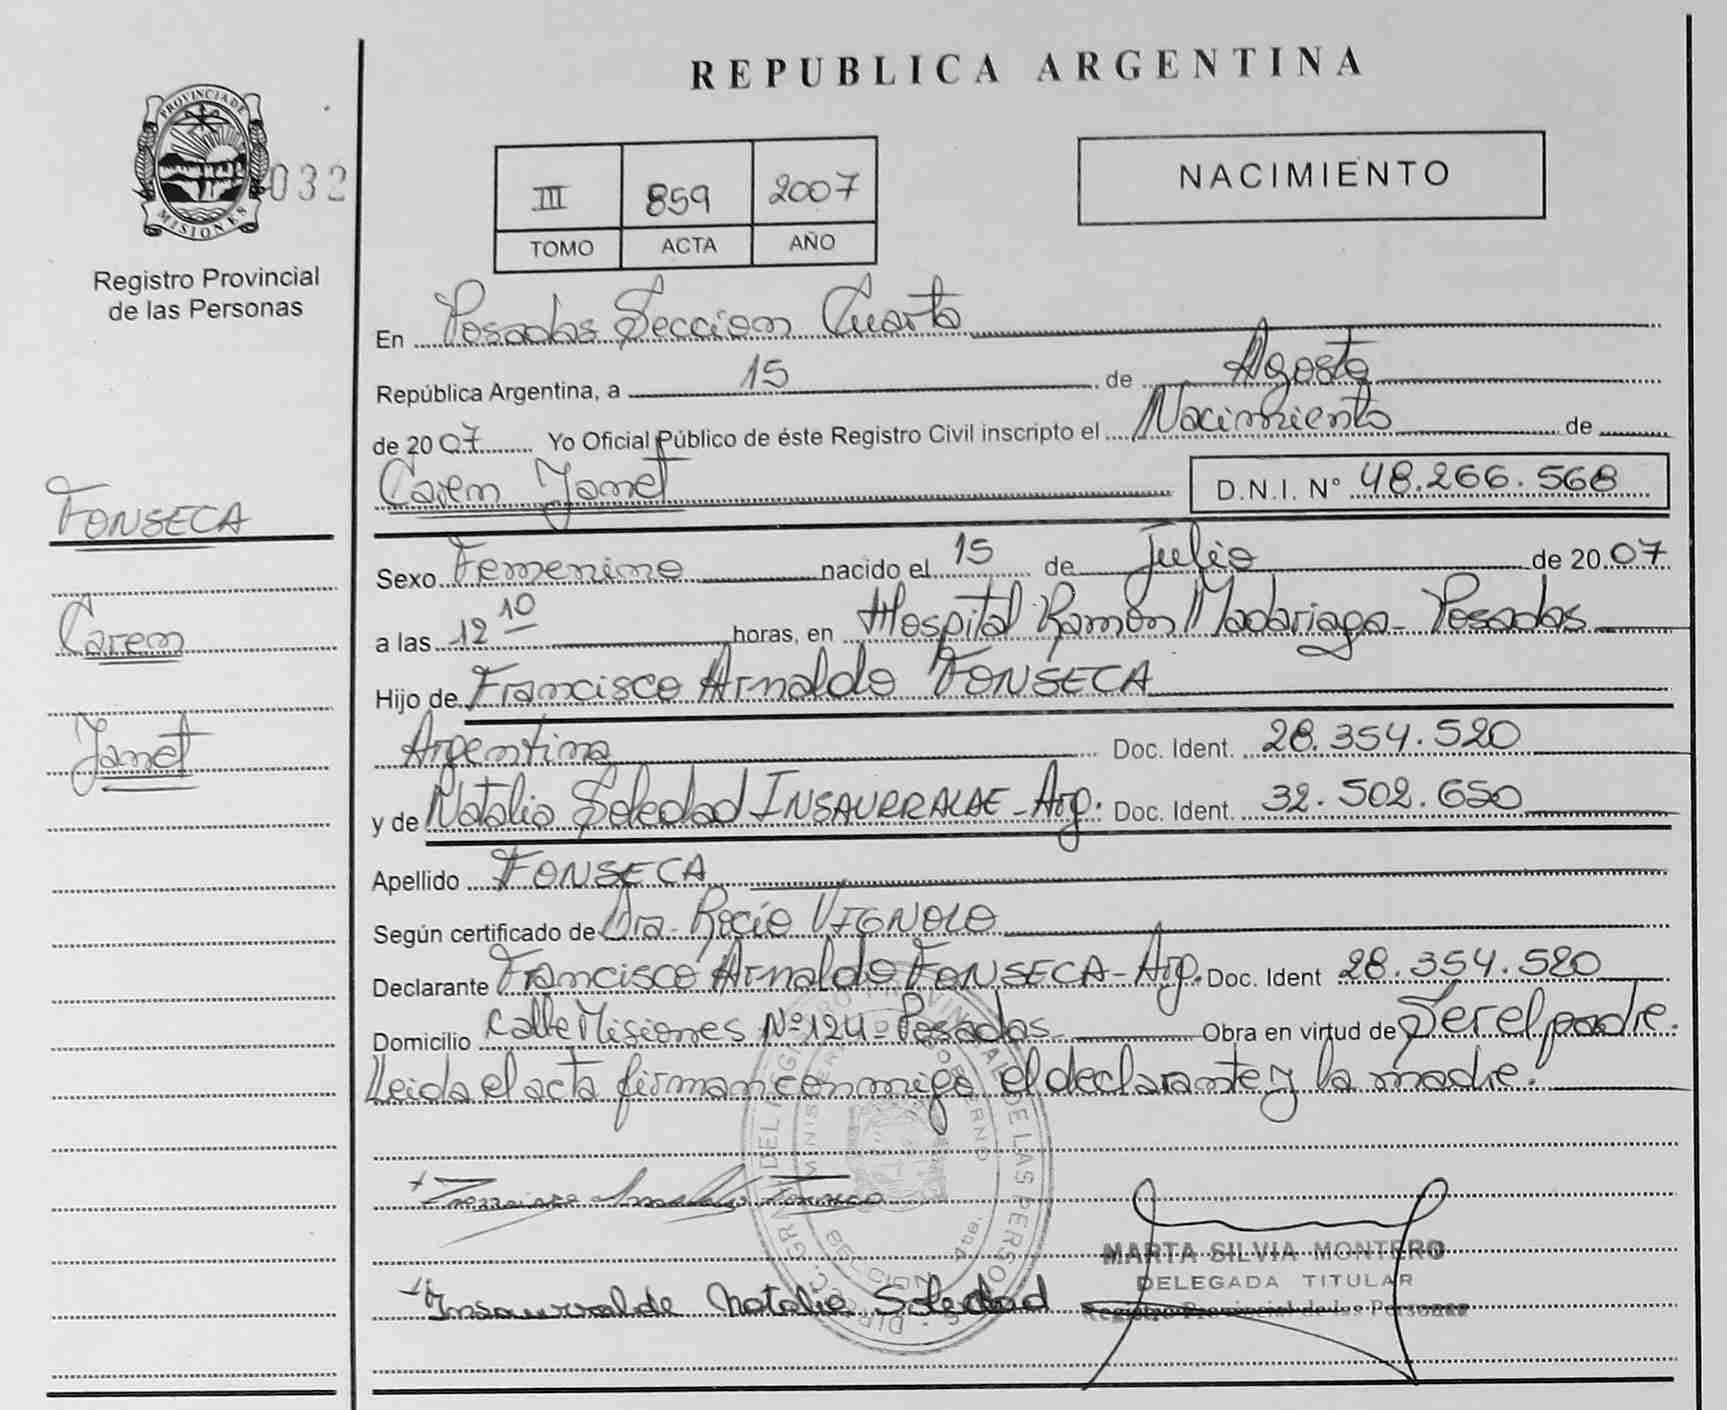 REPUBLICA ARGENTINA
PROVINCIA DE
MISIONES
032
Registro Provincial
de las Personas
III 859 2007
TOMO ACTA AÑO
NACIMIENTO
FONSECA
Carem
Janet
En Posadas Seccion Cuarta
República Argentina, a 15 de Agosto
de 2007 Yo Oficial Público de éste Registro Civil inscripto el Nacimiento de
Carem Janet D.N.I. N° 48.266.568
Sexo Femenino nacido el 15 de Julio de 20.07
a las 12 10 horas, en Hospital Ramón Madariaga - Posadas
Hijo de Francisco Arnaldo FONSECA
Argentina Doc. Ident. 28.354.520
y de Natalia Soledad INSAURRALDE - Arg. Doc. Ident. 32.502.650
Apellido FONSECA
Según certificado de Dra. Rocío VIGNOLO
Declarante Francisco Arnaldo FONSECA - Arg. Doc. Ident 28.354.520
Domicilio Calle Misiones Nº 124 - Posadas Obra en virtud de Ser el padre.
Leida el acta firman conmigo el declarante y la madre.
MARTA SILVIA MONTERO
DELEGADA TITULAR
Registro Provincial de las Personas
Insaurralde Natalia Soledad